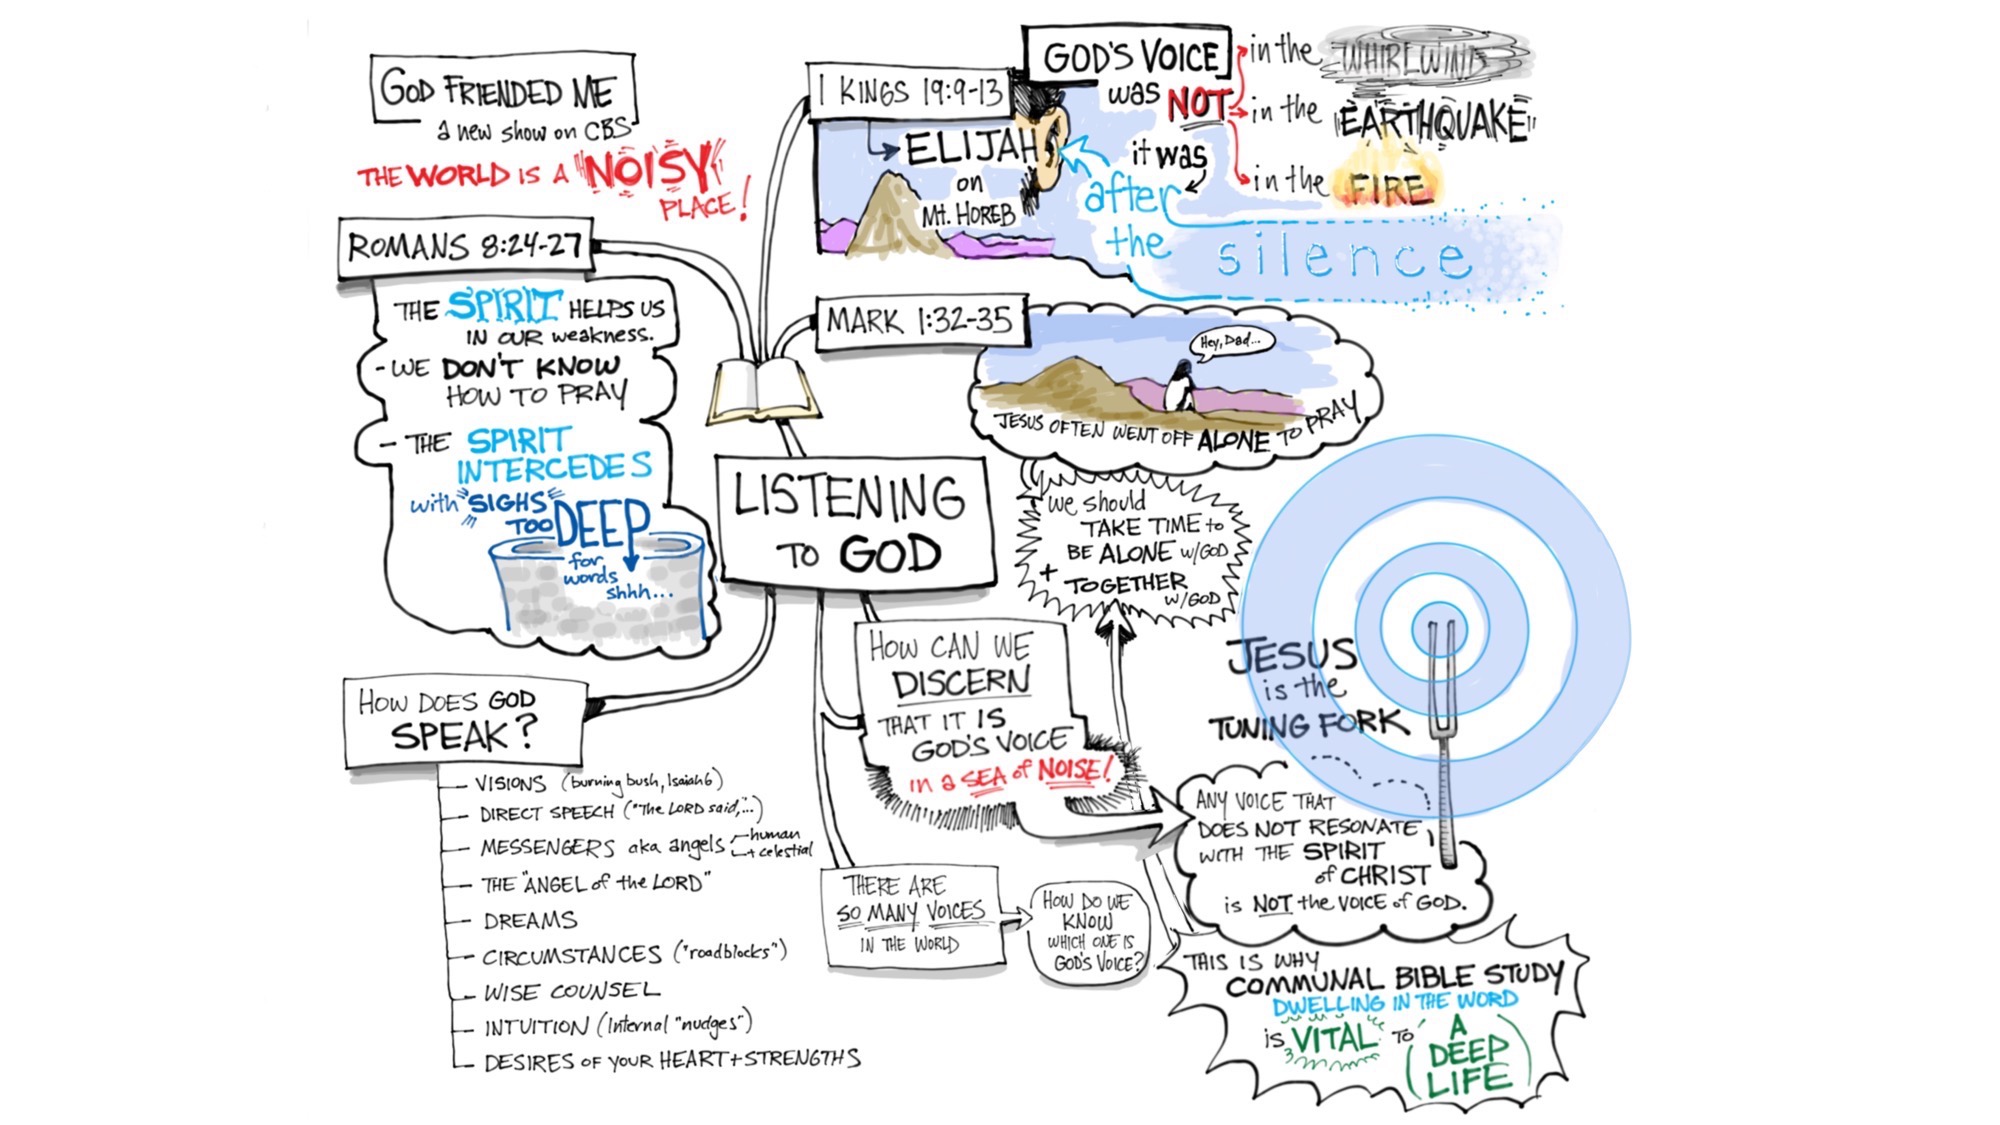 GOD FRIENDED ME
a new show on CBS
THE WORLD IS A "NOISY"
PLACE!
ROMANS 8:24-27
THE SPIRIT HELPS US
IN OUR weakness.
- WE DON'T KNOW
HOW TO PRAY
- THE SPIRIT
INTERCEDES
with "SIGHS
TOO DEEP
for
words
shhh...
1 KINGS 19:9-13
ELIJAH
on
MT. HOREB
GOD'S VOICE
was NOT
in the WHIRLWIND
in the "EARTHQUAKE"
in the FIRE
it was
after
the
silence
MARK 1:32-35
Hey, Dad...
JESUS OFTEN WENT OFF ALONE TO PRAY
we should
TAKE TIME to
BE ALONE w/GOD
+ TOGETHER
w/GOD
LISTENING
TO GOD
HOW DOES GOD
SPEAK?
VISIONS (burning bush, Isaiah 6)
DIRECT SPEECH ("The LORD said,"...)
MESSENGERS aka angels
human
+ celestial
THE "ANGEL of the LORD"
DREAMS
CIRCUMSTANCES ("roadblocks")
WISE COUNSEL
INTUITION (Internal "nudges")
DESIRES OF YOUR HEART + STRENGTHS
HOW CAN WE
DISCERN
THAT IT IS
GOD'S VOICE
in a SEA of NOISE!
THERE ARE
SO MANY VOICES
IN THE WORLD
HOW DO WE
KNOW
WHICH ONE IS
GOD'S VOICE?
JESUS
is the
TUNING FORK
ANY VOICE THAT
DOES NOT RESONATE
WITH THE SPIRIT
of CHRIST
is NOT the VOICE of GOD.
THIS IS WHY
COMMUNAL BIBLE STUDY
DWELLING IN THE WORD
is VITAL TO
A
DEEP
LIFE